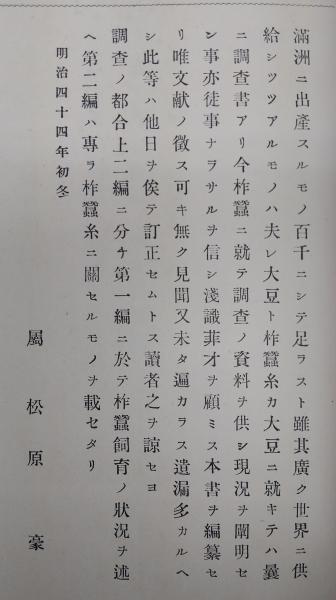 滿洲ニ出產スルモノ百千ニシテ足ラスト雖其廣ク世界ニ供
給シツツアルモノハ夫レ大豆ト柞蠶糸カ大豆ニ就キテハ曩
ニ調查書アリ今柞蠶ニ就テ調查ノ資料ヲ供シ現況ヲ闡明セ
ン事亦徒事ナラサルヲ信シ淺識菲才ヲ顧ミス本書ヲ編纂セ
リ唯文献ノ徵ス可キ無ク見聞又未タ遍カラス遺漏多カルヘ
シ此等ハ他日ヲ俟テ訂正セムトス讀者之ヲ諒セヨ
調查ノ都合上二編ニ分チ第一編ニ於テ柞蠶飼育ノ狀況ヲ述
ヘ第二編ハ專ラ柞蠶糸ニ關セルモノヲ載セタリ
明治四十四年初冬
屬松原豪